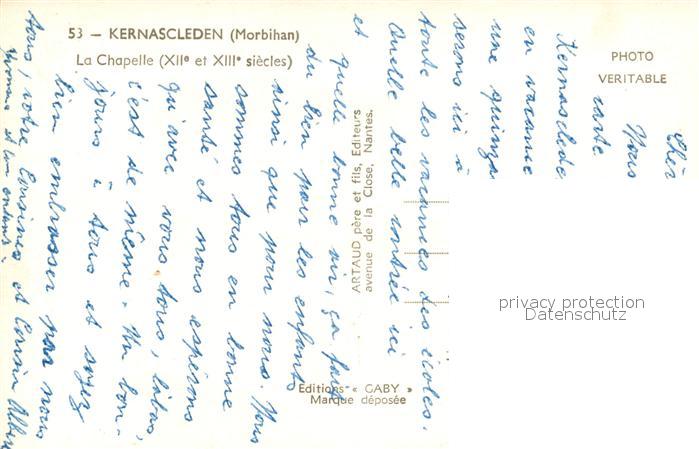 53 — KERNASCLEDEN (Morbihan)
La Chapelle (XIIe et XIIIe siècles)
PHOTO
VERITABLE
ARTAUD père et fils, Editeurs
avenue de la Close, Nantes.
Editions « GABY »
Marque déposée
privacy protection
Datenschutz
Cher
Nous
carte
Kernasclede
en vacance
une quinza
serons ici à
toute les vacances des écoles.
Quelle belle contrée ici
et
quelle bonne air, ça fait
du bien pour les enfants
ainsi que pour nous. Nous
sommes tous en bonne
santé et nous espérons
qu'avec vous tous, là bas,
c'est de même. Un bon-
jours à tous et soyez
bien embrasser par nous
tous, votre Cousines et Cousin Albert